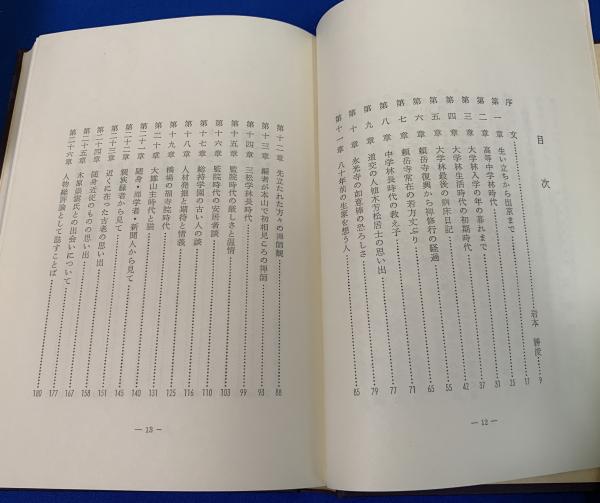 目次
序文 岩本勝俊 9
第一章 生い立ちから出京まで 17
第二章 高等中学林時代 25
第三章 大学林入学の年の暮れまで 31
第四章 大学林生活時代の初期時代 37
第五章 大学林最後の病床日記 42
第六章 頼岳寺復興から禅修行の経過 55
第七章 頼岳寺常在の若方丈ぶり 65
第八章 中学林長時代の教え子 71
第九章 道交の人植木芳松居士の思い出 77
第十章 永光寺の如意棒の恐ろしさ 79
第十一章 八十年前の生家を想う人 85
— 12 —
第十二章 先立たれた方々の禅師観 88
第十三章 編者が本山で初相見ころの禅師 93
第十四章 三松学林長時代 99
第十五章 監院時代の厳しさと温情 103
第十六章 監院時代の安居者談 110
第十七章 総持学園の古い人の談 116
第十八章 人材発掘と期待と情義 125
第十九章 橋場の福寿院時代 131
第二十章 大雄山主時代と猫 140
第二十一章 随身・禅学者・新聞人から見て 145
第二十二章 親族縁者から見て 151
第二十三章 近くに在った古老の思い出 158
第二十四章 随身近従のものの思い出 167
第二十五章 木原崇雲氏との出会いについて 177
第二十六章 人物総評論として話すことば 180
— 13 —